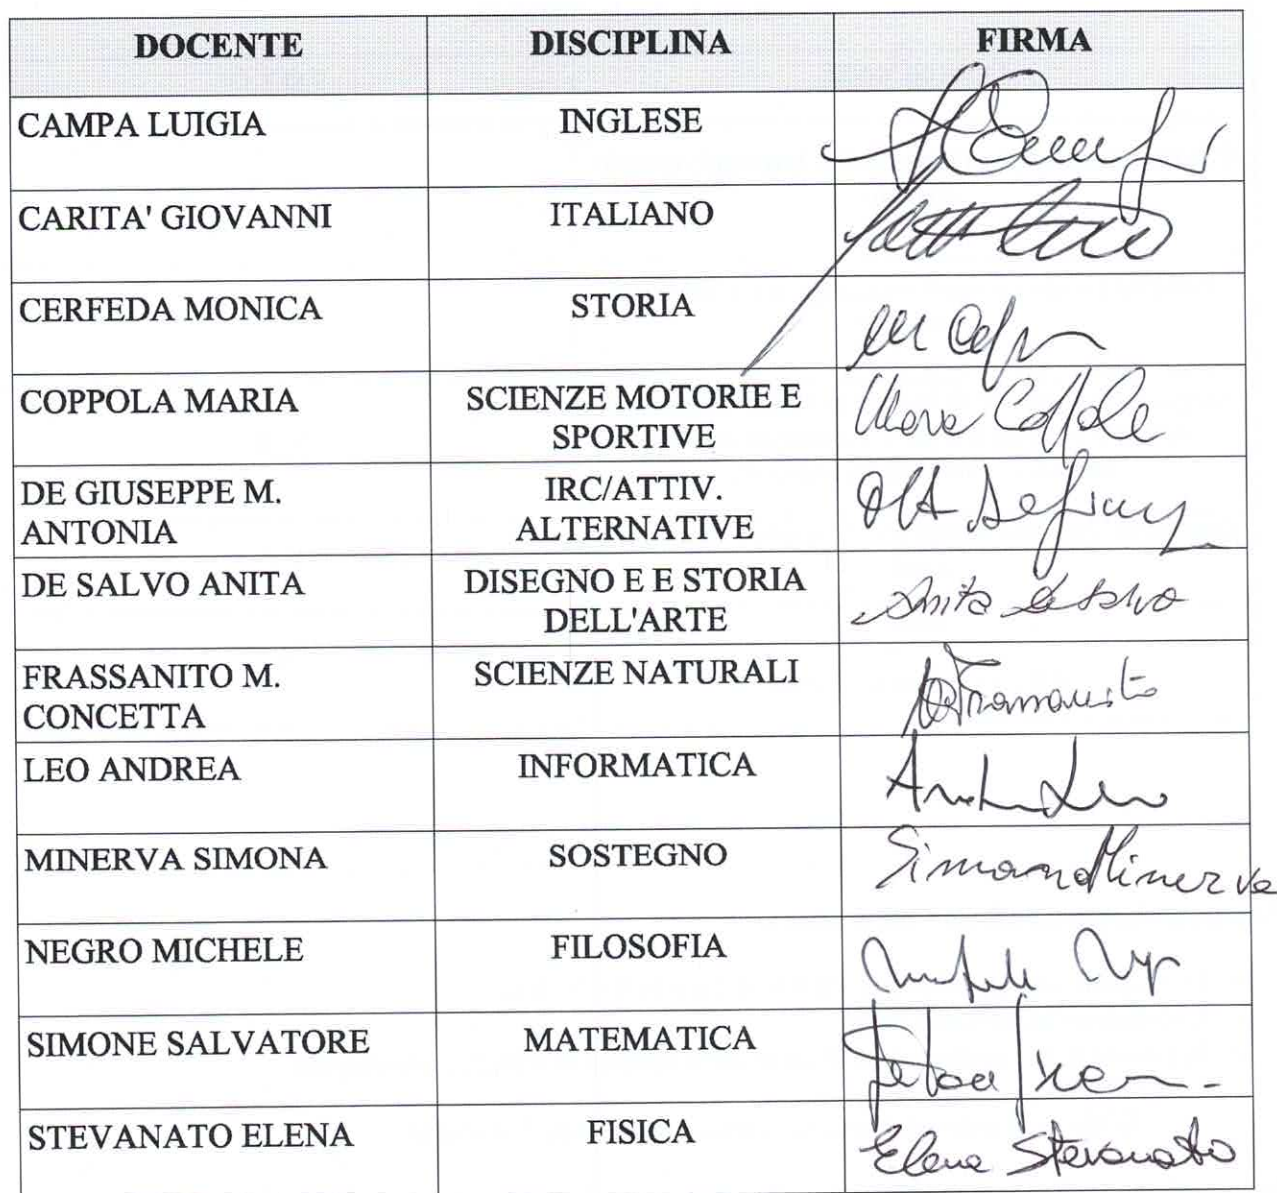 DOCENTE DISCIPLINA FIRMA
CAMPA LUIGIA INGLESE
CARITA' GIOVANNI ITALIANO
CERFEDA MONICA STORIA
COPPOLA MARIA SCIENZE MOTORIE E
SPORTIVE
DE GIUSEPPE M. IRC/ATTIV.
ANTONIA ALTERNATIVE
DE SALVO ANITA DISEGNO E E STORIA Anita De Salvo
DELL'ARTE
FRASSANITO M. SCIENZE NATURALI
CONCETTA
LEO ANDREA INFORMATICA
MINERVA SIMONA SOSTEGNO Simona Minerva
NEGRO MICHELE FILOSOFIA
SIMONE SALVATORE MATEMATICA
STEVANATO ELENA FISICA Elena Stevanato